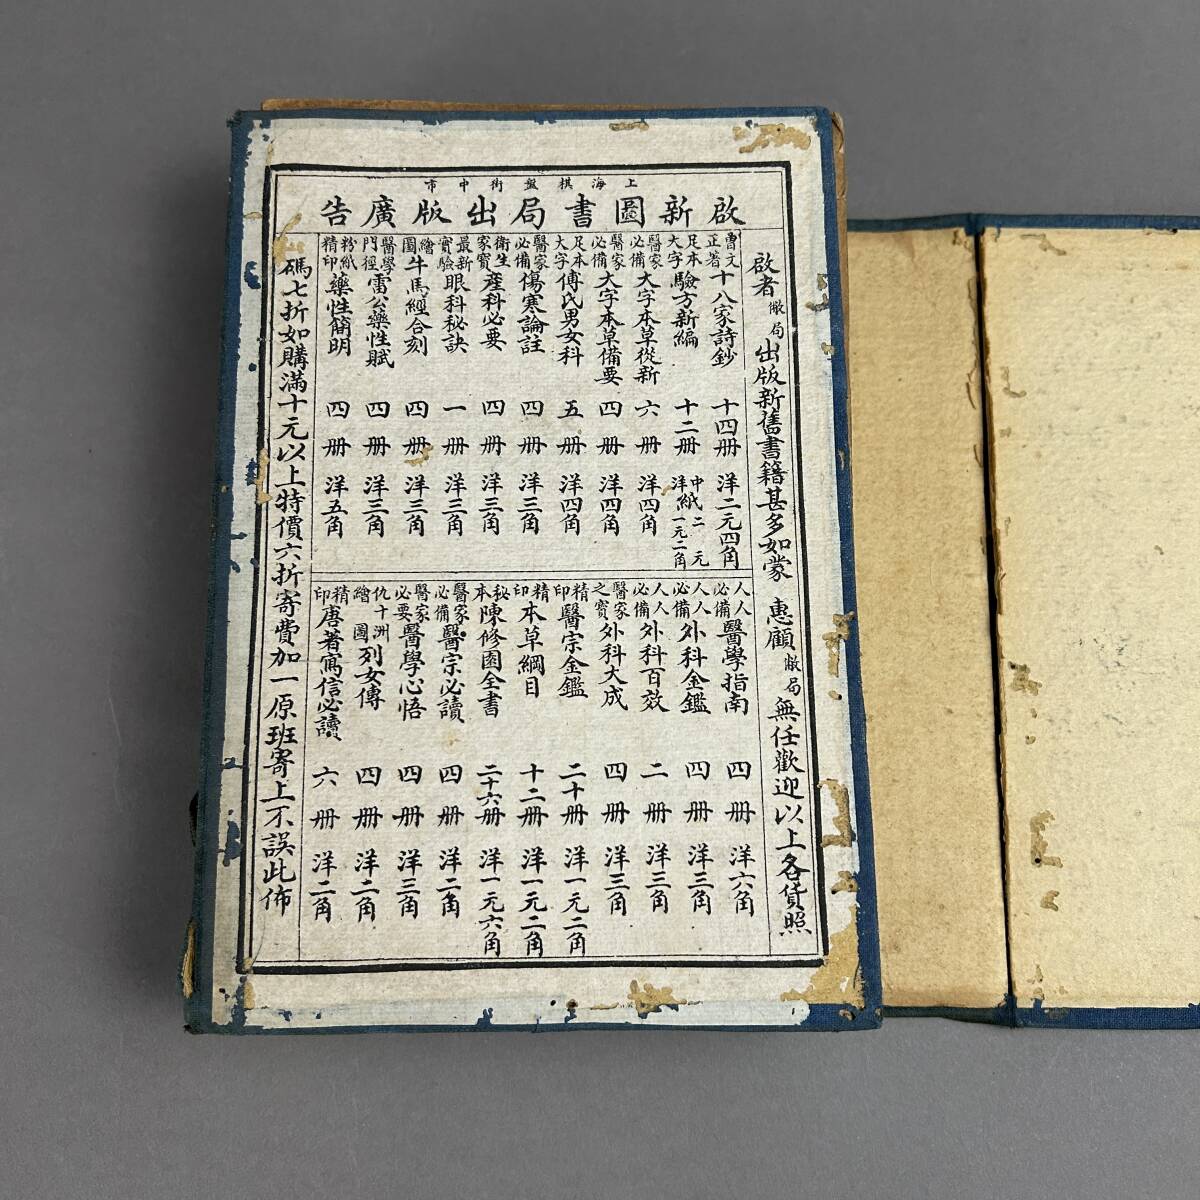 上海棋盤街中市
啟新圖書局出版廣告
啟者敝局出版新舊書籍甚多如蒙 惠顧敝局無任歡迎以上各貨照
曹文正著十八家詩鈔 十四册 洋二元四角
足本大字驗方新編 十二册 中紙二元 洋紙一元二角
醫家必備大字本草從新 六册 洋四角
醫家必備大字本草備要 四册 洋四角
足本大字傅氏男女科 五册 洋四角
醫家必備傷寒論註 四册 洋三角
衛生家寶產科必要 四册 洋三角
最新實驗眼科秘訣 一册 洋三角
繪圖牛馬經合刻 四册 洋三角
醫學門徑雷公藥性賦 四册 洋三角
粉紙精印藥性簡明 四册 洋五角
人人必備醫學指南 四册 洋六角
人人必備外科金鑑 四册 洋三角
人人必備外科百效 二册 洋三角
醫家之寶外科大成 四册 洋三角
精印醫宗金鑑 二十册 洋一元二角
精印本草綱目 十二册 洋一元二角
秘本陳修園全書 二十六册 洋一元六角
醫家必備醫宗必讀 四册 洋二角
醫家必要醫學心悟 四册 洋三角
仇十洲繪圖列女傳 四册 洋二角
精印唐著寫信必讀 六册 洋二角
碼七折如購滿十元以上特價六折寄費加一原班寄上不誤此佈